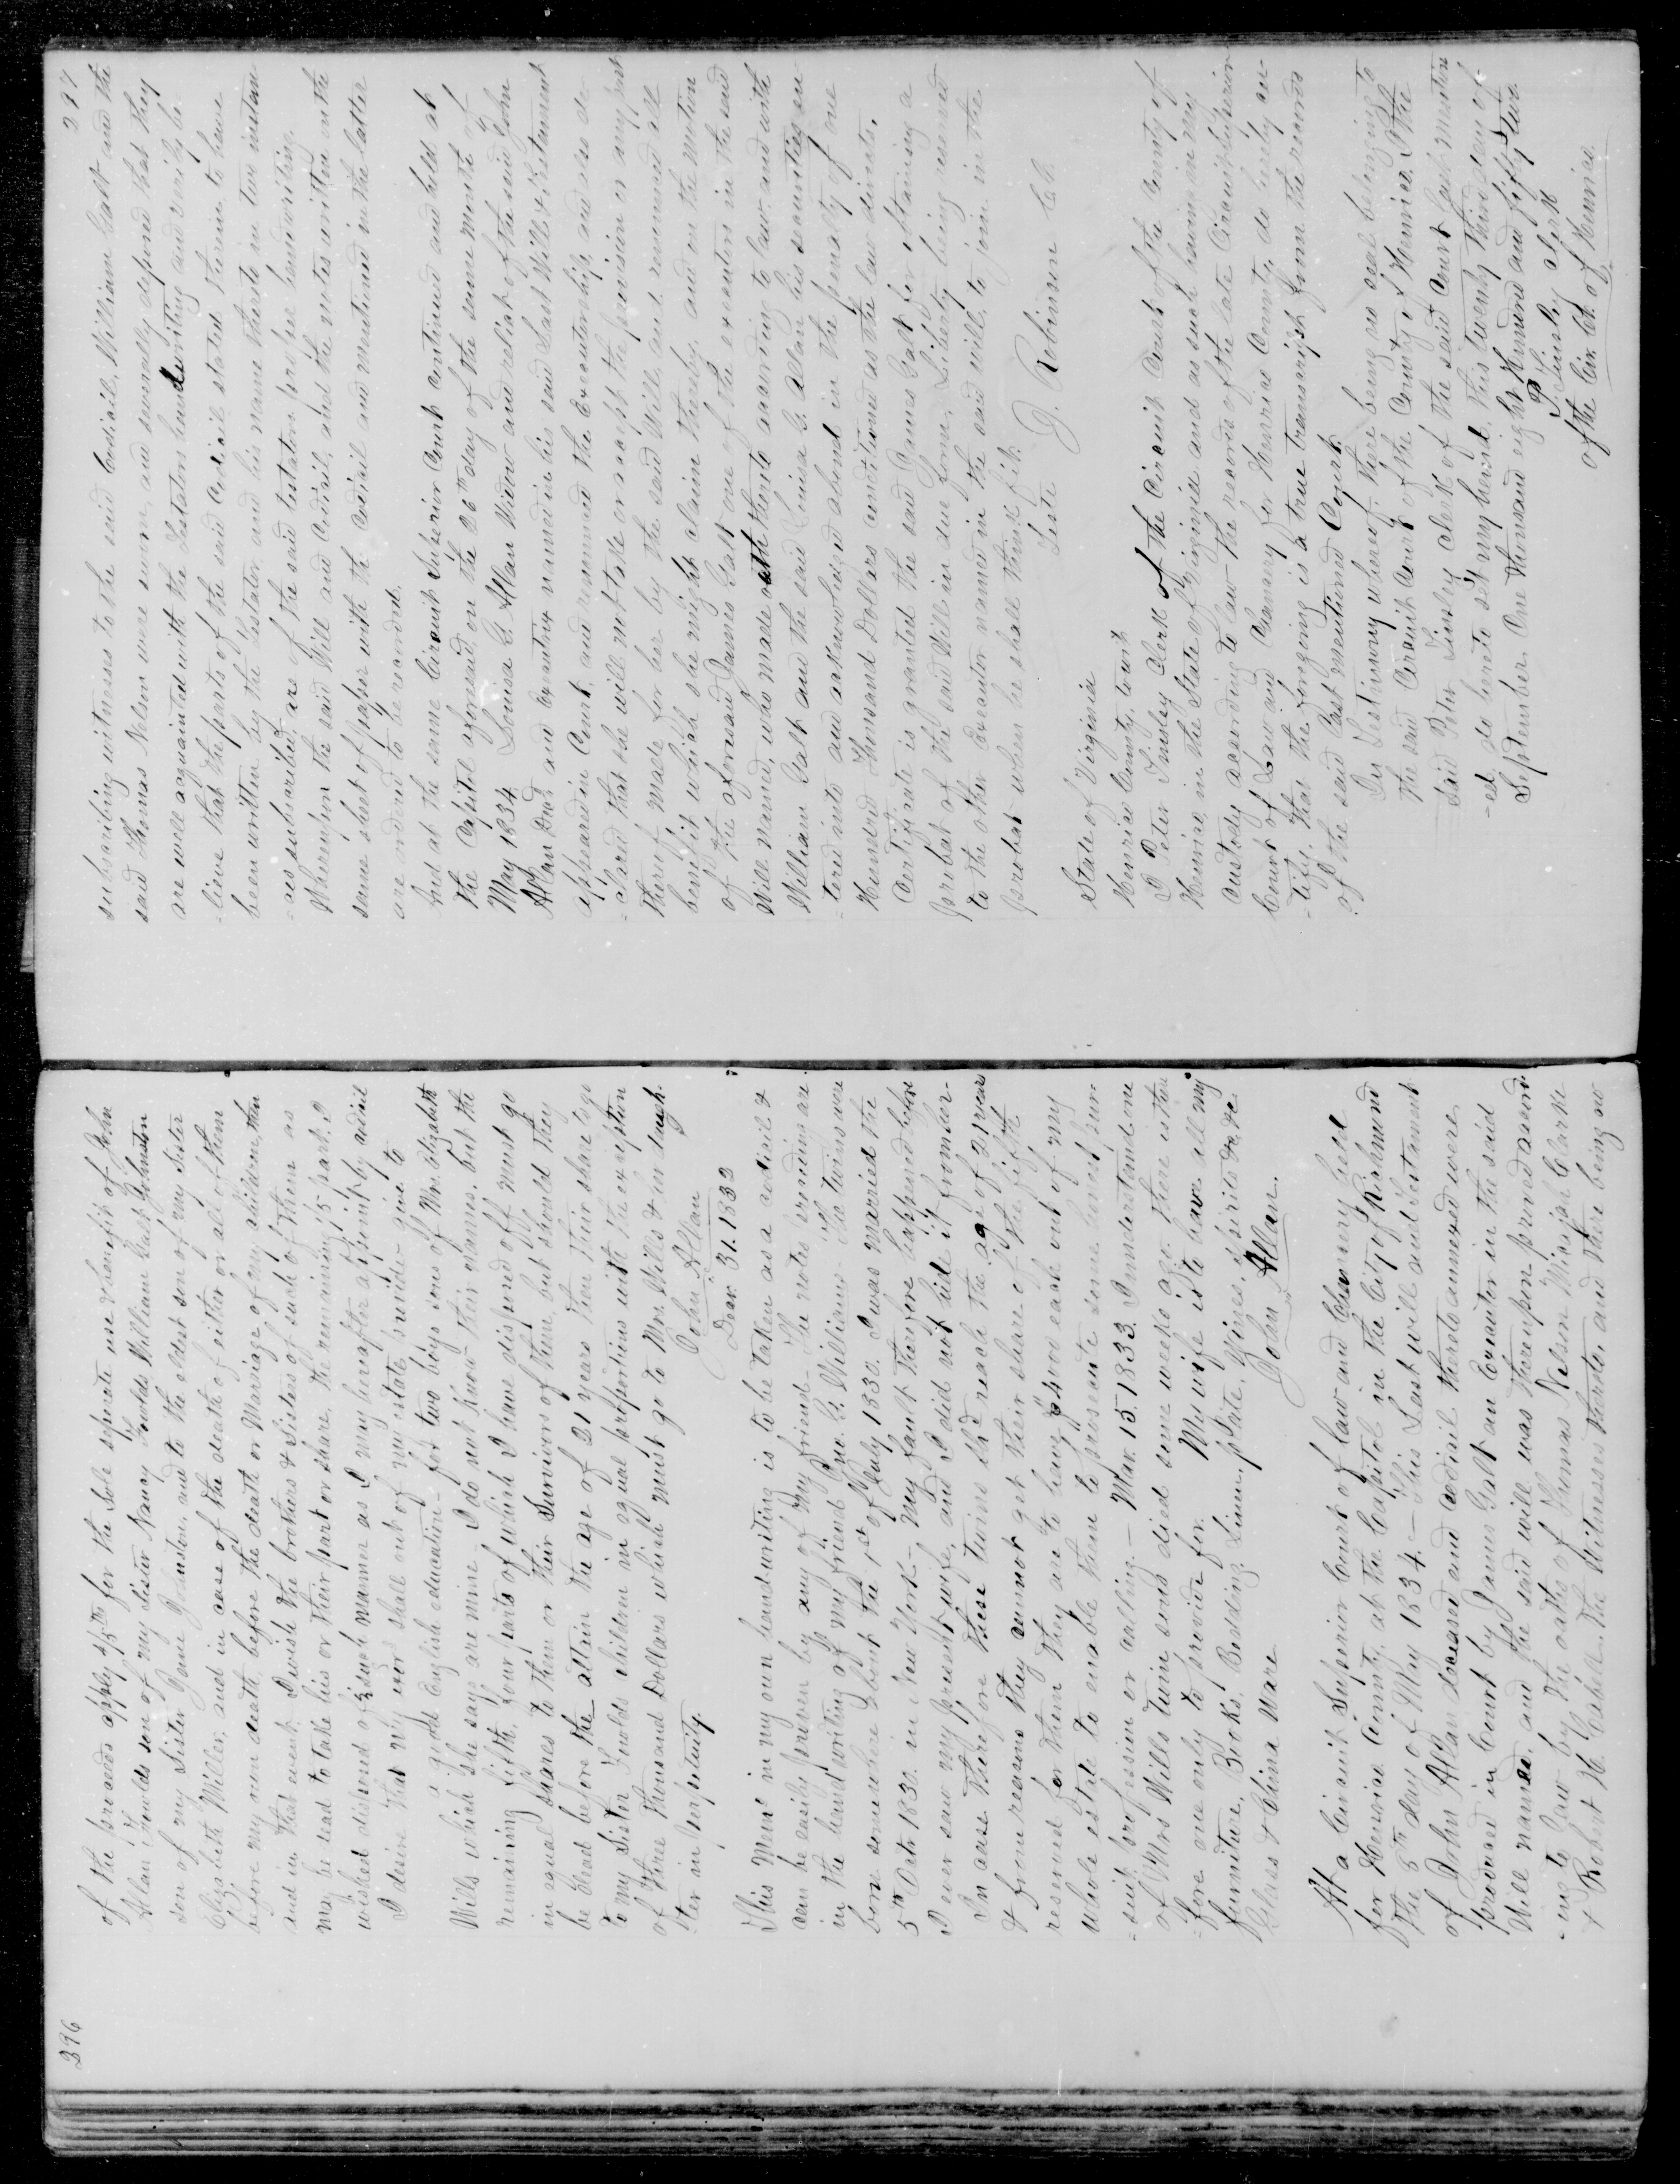 296
of the proceeds apply 4/5th for the Sole seperate use & benefit of John
Allan Fowlds son of my Sister Nancy Fowlds William Galt Johnston
son of my Sister Jane Johnston, and to the eldest son of my Sister
Elizabeth Miller, and in case of the death of either or all of them
before my own death, before the death or Marriage of my children, then
and in that event, I wish the brothers & Sisters of such of them as
may be dead to take his or their part or share, the remaining 1/5 part, I
wished disposed of in such manner as I may hereafter appoint by codicil
I desire that my exors shall out of my estate provide give to
a good English education for two boys sons of Mrs Elizabeth
Wills which she says are mine I do not know their names, but the
remaining fifth, four parts of which I have disposed off must go
in equal shares to them or their Survivors of them, but should they
be dead before the attain the age of 21 years then their share to go
to my Sister Fowlds children in equal proportions with the exception
of three thousand Dollars which must go to Mrs. Wills & her daugh
ter in perpetuity.
John Allan
Decr 31. 1832
This Memo in my own handwriting is to be taken as a codicil &
can be easily proven by any of my friends The notes preceding are
in the handwriting of my friend Jno. G. Williams The twins were
born sometime about the 1st of July 1830. I was married the
5th Octr 1830. in New York my fault therefore happened before
I ever saw my present wife, and I did not hide it from her
In case therefore these twins shd reach the age of 21 years
& from reasons they cannot get their share of the fifth
reserved for them they are to have $4000 each out of my
whole estate to enable them to prosecute some honest pur
-suit, profession or calling. — Mar. 15. 1833. I understand one
of Mrs Wills twin sons died some weeks ago. there is there
-fore one only to provide for. My wife is to have all my
furniture, Books, Bedding, Linen, plate, Wines, Spirits &c, &c.
Glass & China Ware
John Allan.
At a Circuit Superior Court of Law and Chancery held
for Henrico County, at the Capitol in the City of Richmond
the 5th day of May 1834. — This Last will and testament
of John Allan deceased and codicil thereto annexed were
produced in Court by James Galt an Executor in the said
Will named, and the said will was thereupon proved accord
-ing to law by the oaths of Thomas Nelson Micajah Clarke
& Robert H. Cabell the Witnesses thereto, and there being no
297
subscribing witnesses to the said Codicil, William Galt and the
said Thomas Nelson were sworn, and severally deposed that they
are well acquainted with the Testators handwriting and verily be
-lieve that the parts of the said Codicil stated therein to have
been written by the testator and his name thereto in two instan
-ces subscribed are of the said testators proper handwriting.
Whereupon the said Will and Codicil, and the notes written on the
same sheet of paper with the codicil and mentioned in the latter
are ordered to be recorded.
And at the same Circuit Superior Court continued and held at
the Capitol aforesaid, on the 26th day of the same month of
May 1834 Louisa G. Allan Widow and relict of the said John
Allan Decd and Executrix named in his said Last Will & testament
appeared in Court, and renounced the Executorship, and also de
-clared that she will not take or accept the provision or any part
thereof made for her by the said Will, and renounced all
benefit which she might claim thereby. and on the motion
of the aforesaid James Galt one of the executors in the said
Will named, who made oath thereto according to law, and with
William Galt and the said Louisa G. Allan his securities en
-tered into and acknowledged a bond in the penalty of one
Hundred Thousand Dollars conditioned as the law directs,
Certificate is granted the said James Galt for obtaining a
probat of the said Will in due form, Liberty being reserved
to the other Executor named in the said will, to join in the
probat when he shall think fit.
Teste J. Robinson Clk
State of Virginia
Henrico County, towit
I Peter Tinsley Clerk of the Circuit Court of the County of
Henrico, in the State of Virginia and as such having in my
custody according to law the records of the late Circuit Superior
Court of Law and Chancery for Henrico County, do hereby cer
-tify, that the foregoing is a true transcript from the records
of the said last mentioned Court.
In Testimony whereof, there being no seal belonging to
the said Circuit Court of the County of Henrico, I the
said Peter Tinsley clerk of the said Court last mention
-ed, do hereto set my hand, this twenty third day of
September One thousand eight Hundred and fifty two
P. Tinsley Clerk
of the Cir. Ct. of Henrico.